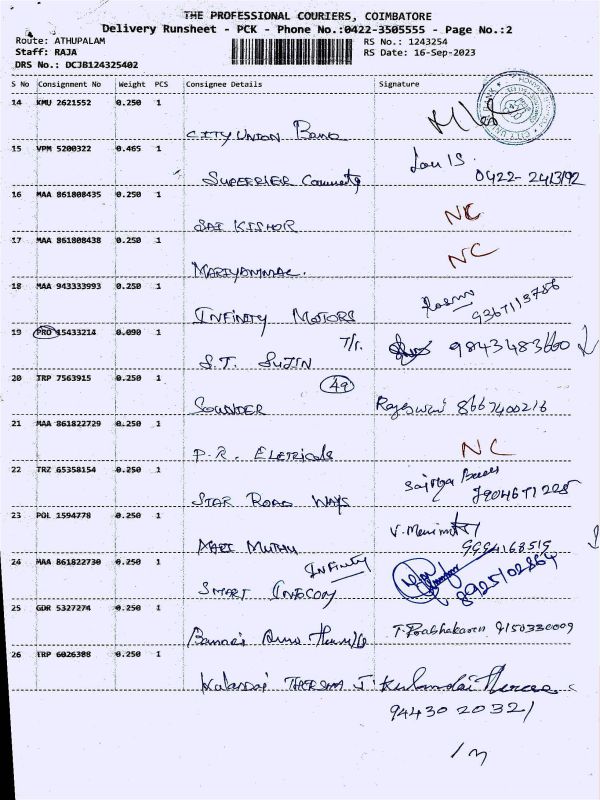 THE PROFESSIONAL COURIERS, COIMBATORE
Delivery Runsheet - PCK - Phone No.:0422-3505555 - Page No.:2
Route: ATHUPALAM
RS No.: 1243254
Staff: RAJA
RS Date: 16-Sep-2023
DRS No.: DCJB124325402
S No Consignment No Weight PCS Consignee Details Signature
14 KMU 2621552 0.250 1
CITY UNION BANK
15 VPM 5200322 0.465 1
SUPERRIER
0422-
16 MAA 861808435 0.250 1
SAI KISHOR NC
17 MAA 861808438 0.250 1
MARIYAMMAL NC
18 MAA 943333993 0.250 1
INFINITY MOTORS 9367113786
19 PRO 15433214 0.090 1
T/r.
S.T. SUJIN 9843483660
20 TRP 7563915 0.250 1
49
SOUNDER Rajeswari 8667400216
21 MAA 861822729 0.250 1
P.R. Eletricals NC
22 TRZ 65358154 0.250 1
STAR ROAD WAYS
23 POL 1594778 0.250 1
MARI MUTHU 9994168519
24 MAA 861822730 0.250 1
INFINITY
SMART INFOCOM 8925102864
25 GDR 5327274 0.250 1
T. Prabhakaran 9150330009
26 TRP 6026308 0.250 1
THERESA
9443020321